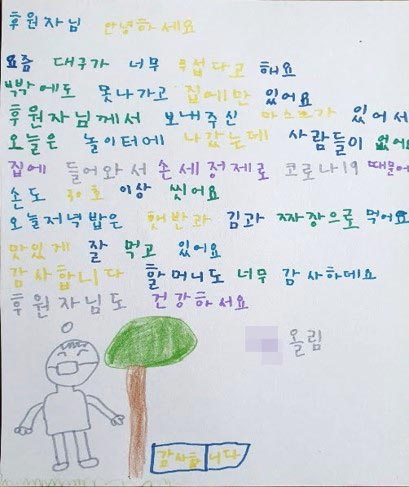 후원자님 안녕하세요
요즘 대구가 너무 무섭다고 해요
밖에도 못나가고 집에만 있어요
후원자님께서 보내주신 마스크가 있어서
오늘은 놀이터에 나갔는데 사람들이 없어
집에 들어와서 손세정제로 코로나19 때문에
손도 30초 이상 씻어요
오늘저녁밥은 햇반과 김과 짜장으로 먹어요
맛있게 잘 먹고 있어요
감사합니다 할머니도 너무 감사하데요
후원자님도 건강하서요
올림
감사합니다